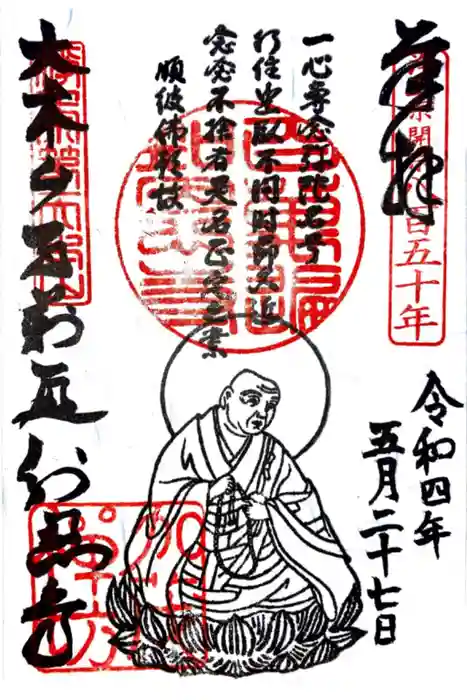 奉拝
開宗八百五十年
令和四年
五月二十七日
一心専念弥陀名号
行住坐臥不問時節久近
念念不捨者是名正定之業
順彼佛願故
大本山百萬遍知恩寺